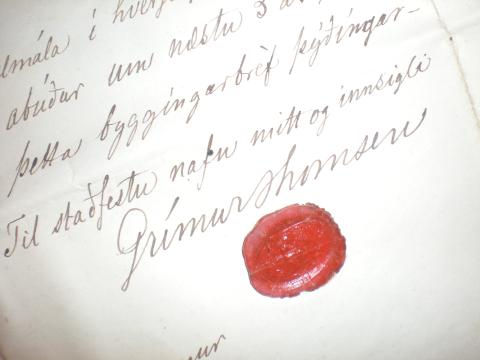 ilmála í hverju
ábúðar um næstu 3 ár,
þetta byggíngarbrèf þýðíngar-
Til staðfestu nafn mitt og innsigli
Grímur Thomsen